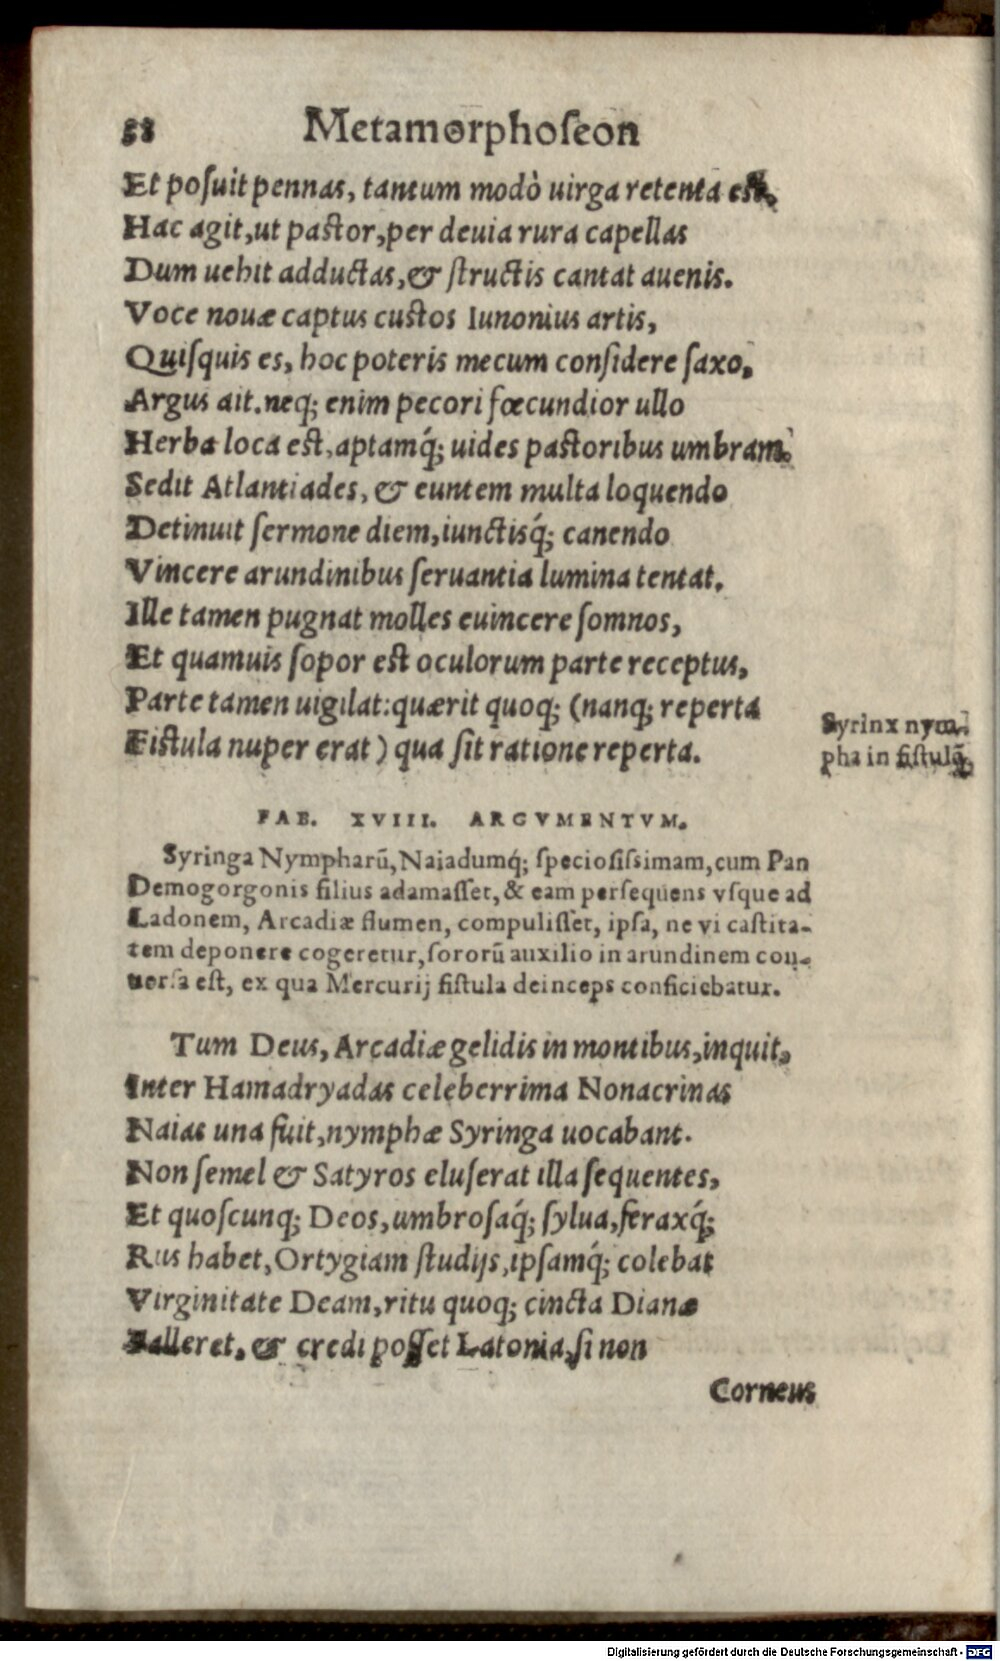 58 Metamorphoſeon
Et poſuit pennas, tantum modò uirga retenta eſt.
Hac agit, ut paſtor, per deuia rura capellas
Dum uehit adductas, & ſtructis cantat auenis.
Voce nouæ captus cuſtos Iunonius artis,
Quiſquis es, hoc poteris mecum conſidere ſaxo,
Argus ait. neq; enim pecori fœcundior ullo
Herba loca eſt, aptamq́; uides paſtoribus umbram.
Sedit Atlantiades, & euntem multa loquendo
Detinuit ſermone diem, iunctisq́; canendo
Vincere arundinibus ſeruantia lumina tentat.
Ille tamen pugnat molles euincere ſomnos,
Et quamuis ſopor eſt oculorum parte receptus,
Parte tamen uigilat: quærit quoq; (nanq; reperta
Fiſtula nuper erat) qua ſit ratione reperta.
Syrinx nym-
pha in fiſtulã.
FAB. XVIII. ARGVMENTVM.
Syringa Nympharũ, Naiadumq́; ſpecioſiſsimam, cum Pan
Demogorgonis filius adamaſſet, & eam perſequens vſque ad
Ladonem, Arcadiæ flumen, compuliſſet, ipſa, ne vi caſtita-
tem deponere cogeretur, ſororũ auxilio in arundinem con-
uerſa eſt, ex qua Mercurij fiſtula deinceps conficiebatur.
Tum Deus, Arcadiæ gelidis in montibus, inquit,
Inter Hamadryadas celeberrima Nonacrinas
Naias una fuit, nymphæ Syringa uocabant.
Non ſemel & Satyros eluſerat illa ſequentes,
Et quoſcunq; Deos, umbroſaq́; ſylua, feraxq́;
Rus habet, Ortygiam ſtudijs, ipſamq́; colebat
Virginitate Deam, ritu quoq; cincta Dianæ
Falleret, & credi poſſet Latonia, ſi non
Corneus
Digitalisierung gefördert durch die Deutsche Forschungsgemeinschaft - DFG